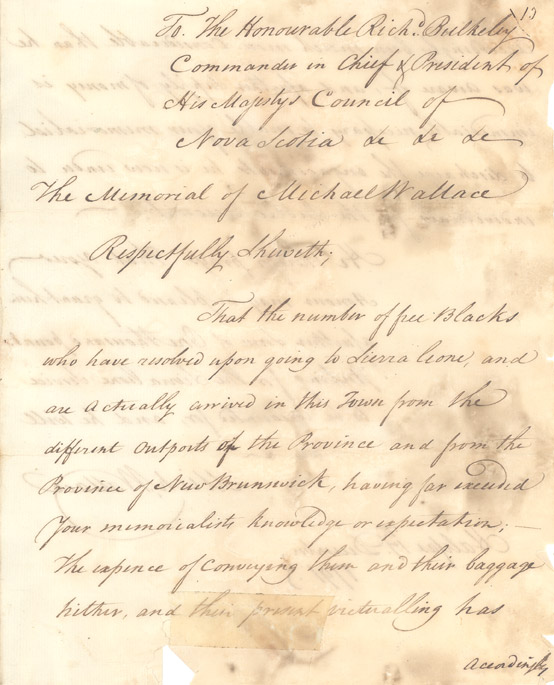 13
To The Honourable Richd. Bulkeley
Commander in Chief & President of
His Majestys Council of
Nova Scotia &c &c &c
The Memorial of Michael Wallace
Respectfully Sheweth;
That the number of free Blacks
who have resolved upon going to Sierra Leone, and
are actually arrived in this Town from the
different outports of the Province and from the
Province of New Brunswick, having far exceeded
Your memorialists knowledge or expectation; —
The expence of conveying them and their baggage
hither, and their present victualling has
accordingly